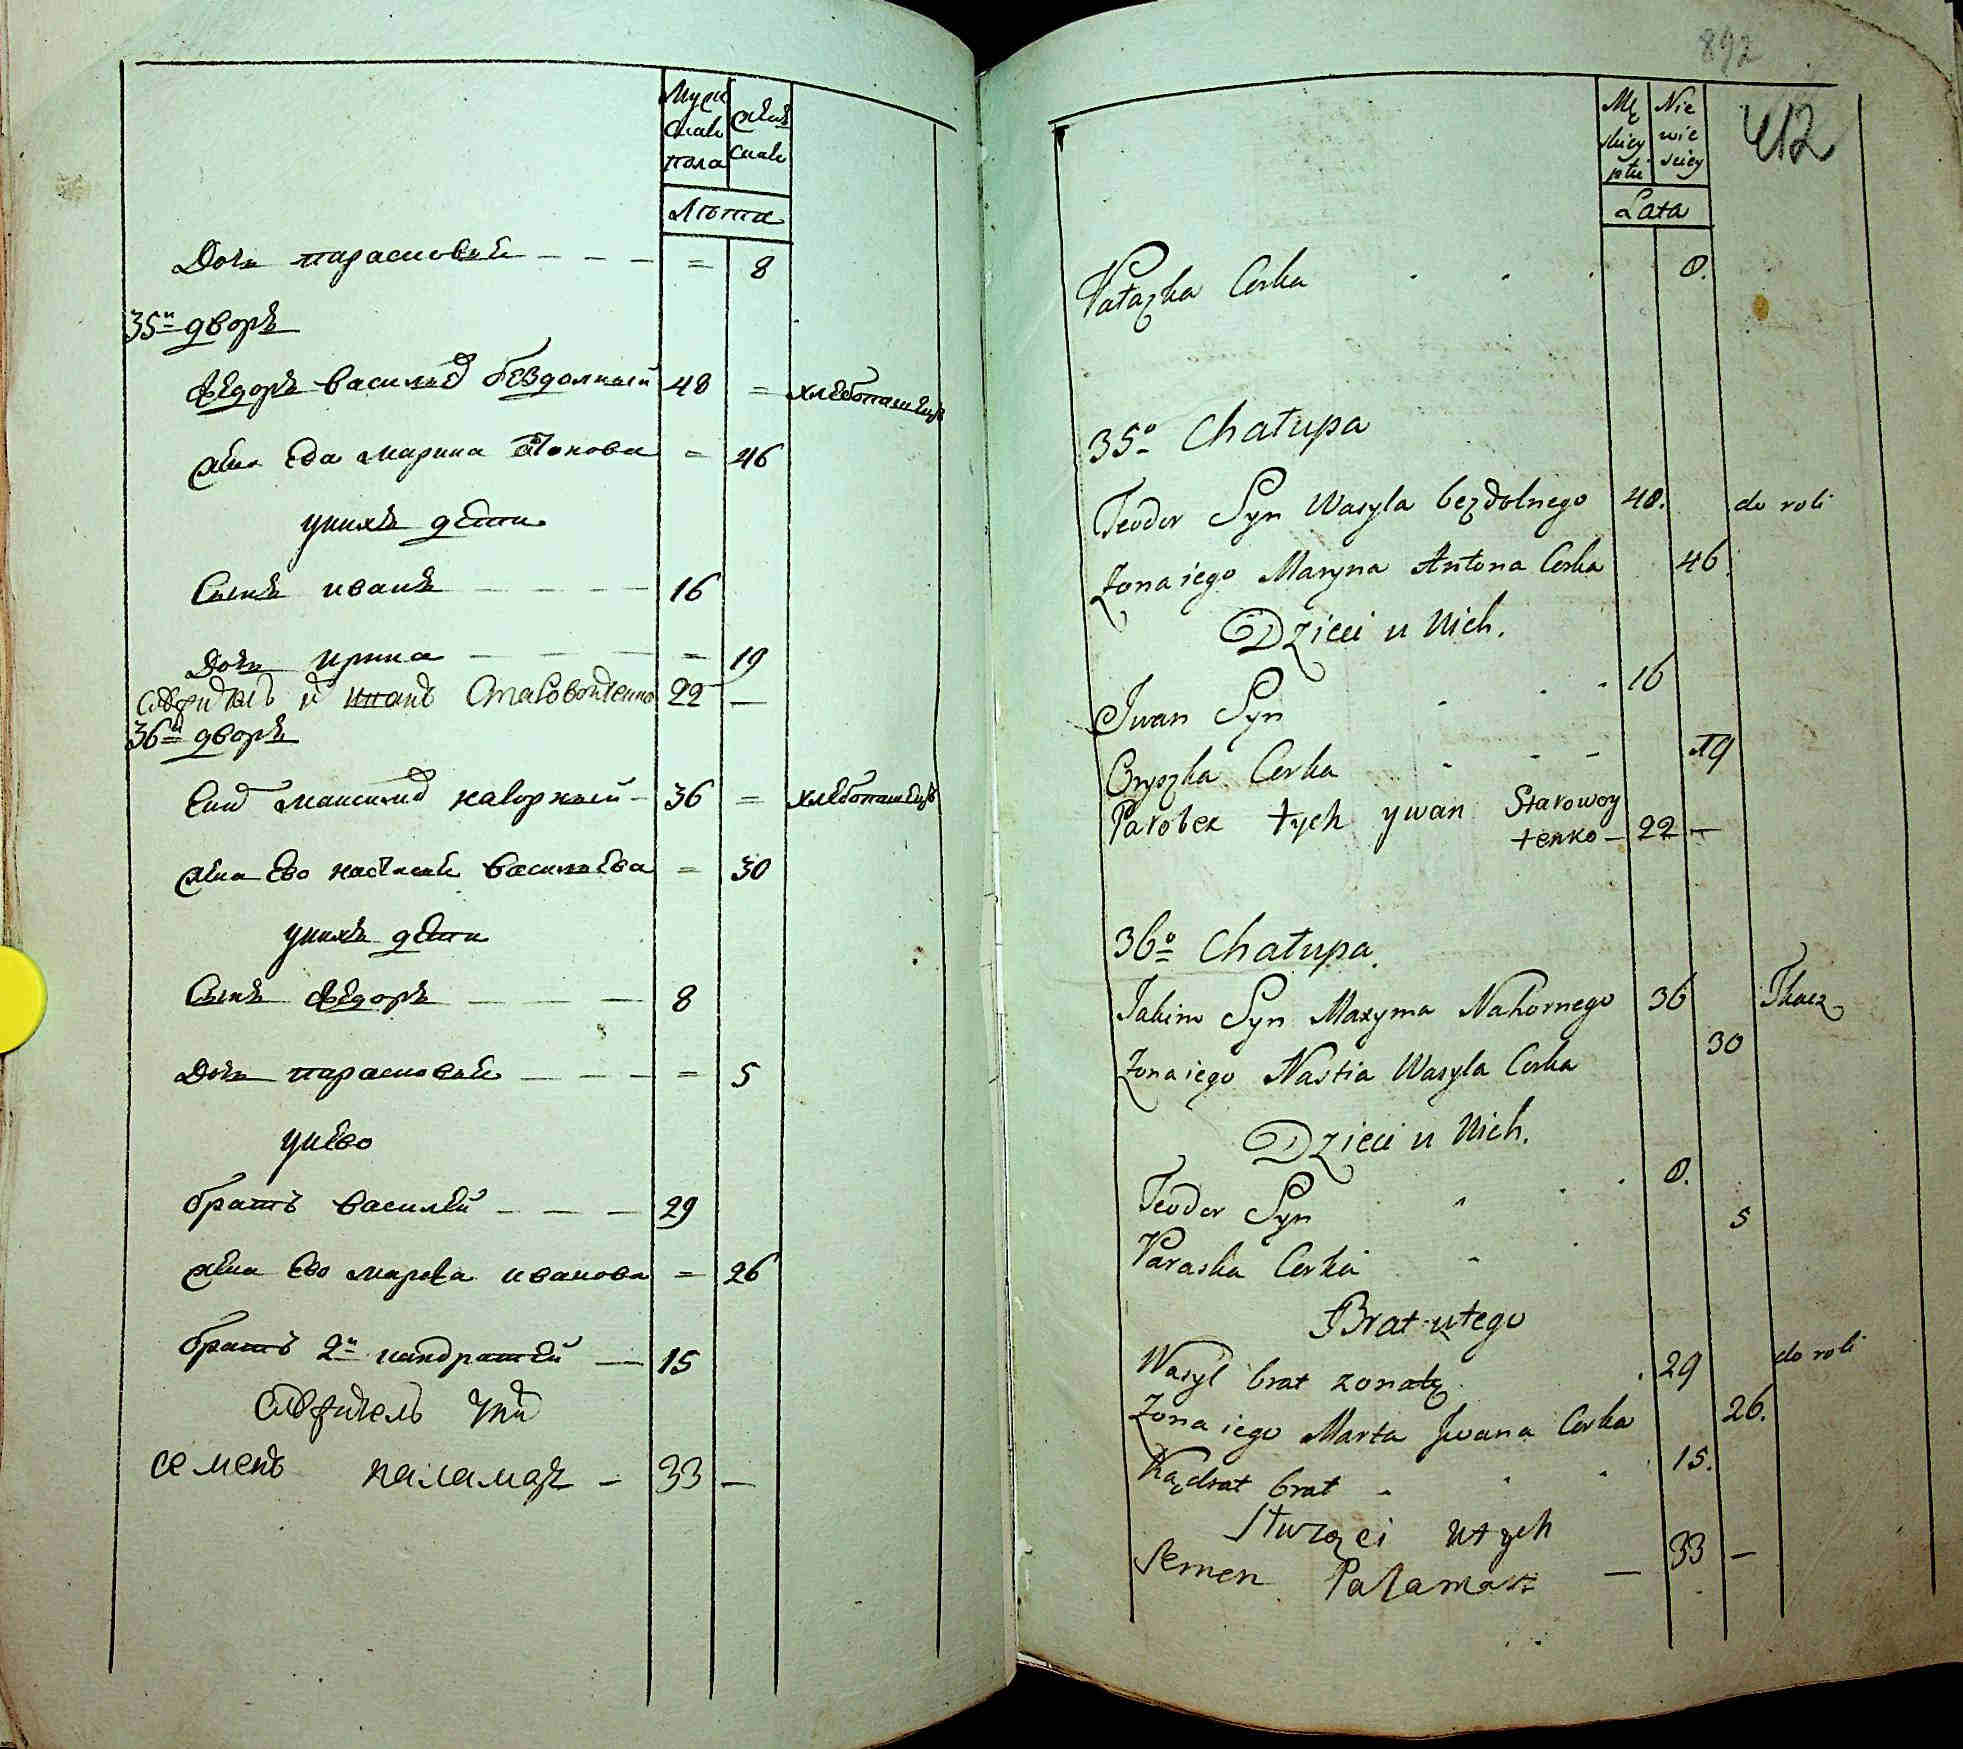 Мужска пола
женска
Лѣта
Дочь парасковия - - - = 8
35й дворъ
Федоръ василиев бездолный 48 = хлебопашецъ
жена ево марина антонова = 46
у нихъ дети
Сынъ иванъ - - - - 16
Дочь ирина - - - = 19
22 —
36й дворъ
Еким максимов нагорный - 36 = хлебопашецъ
жена ево настасия василиева = 30
у нихъ дети
Сынъ Федоръ - - - 8
Дочь парасковия - - - = 5
у него
братъ василей - - - 29
жена ево марфа иванова = 26
братъ 2й кондратей — 15
семенъ паламар — 33 —
892
412
Męskiey płci
Niewieściey
Lata
Pałażka Corka . . . 8.
35o Chałupa
Teodor Syn Wasyla bezdolnego 48. do roli
Zona iego Maryna Antona Corka 46.
Dzieci u Nich.
Iwan Syn . . . 16
Oryszka Corka . - - 19
Parobek tych ywan Starowoy
tenko — 22 —
36o Chałupa.
Jakim Syn Maxyma Nahornego 36 Tkacz
Zona iego Nastia Wasyla Corka 30
Dzieci u Nich.
Teodor Syn . . . 8.
Paraska Corka . . 5
Brat u tego
Wasyl brat zonaty . 29 do roli
Zona iego Marta Jwana Corka 26.
Kądrat brat - . . 15.
Służący u tych
Semen Pałamarz — 33 —